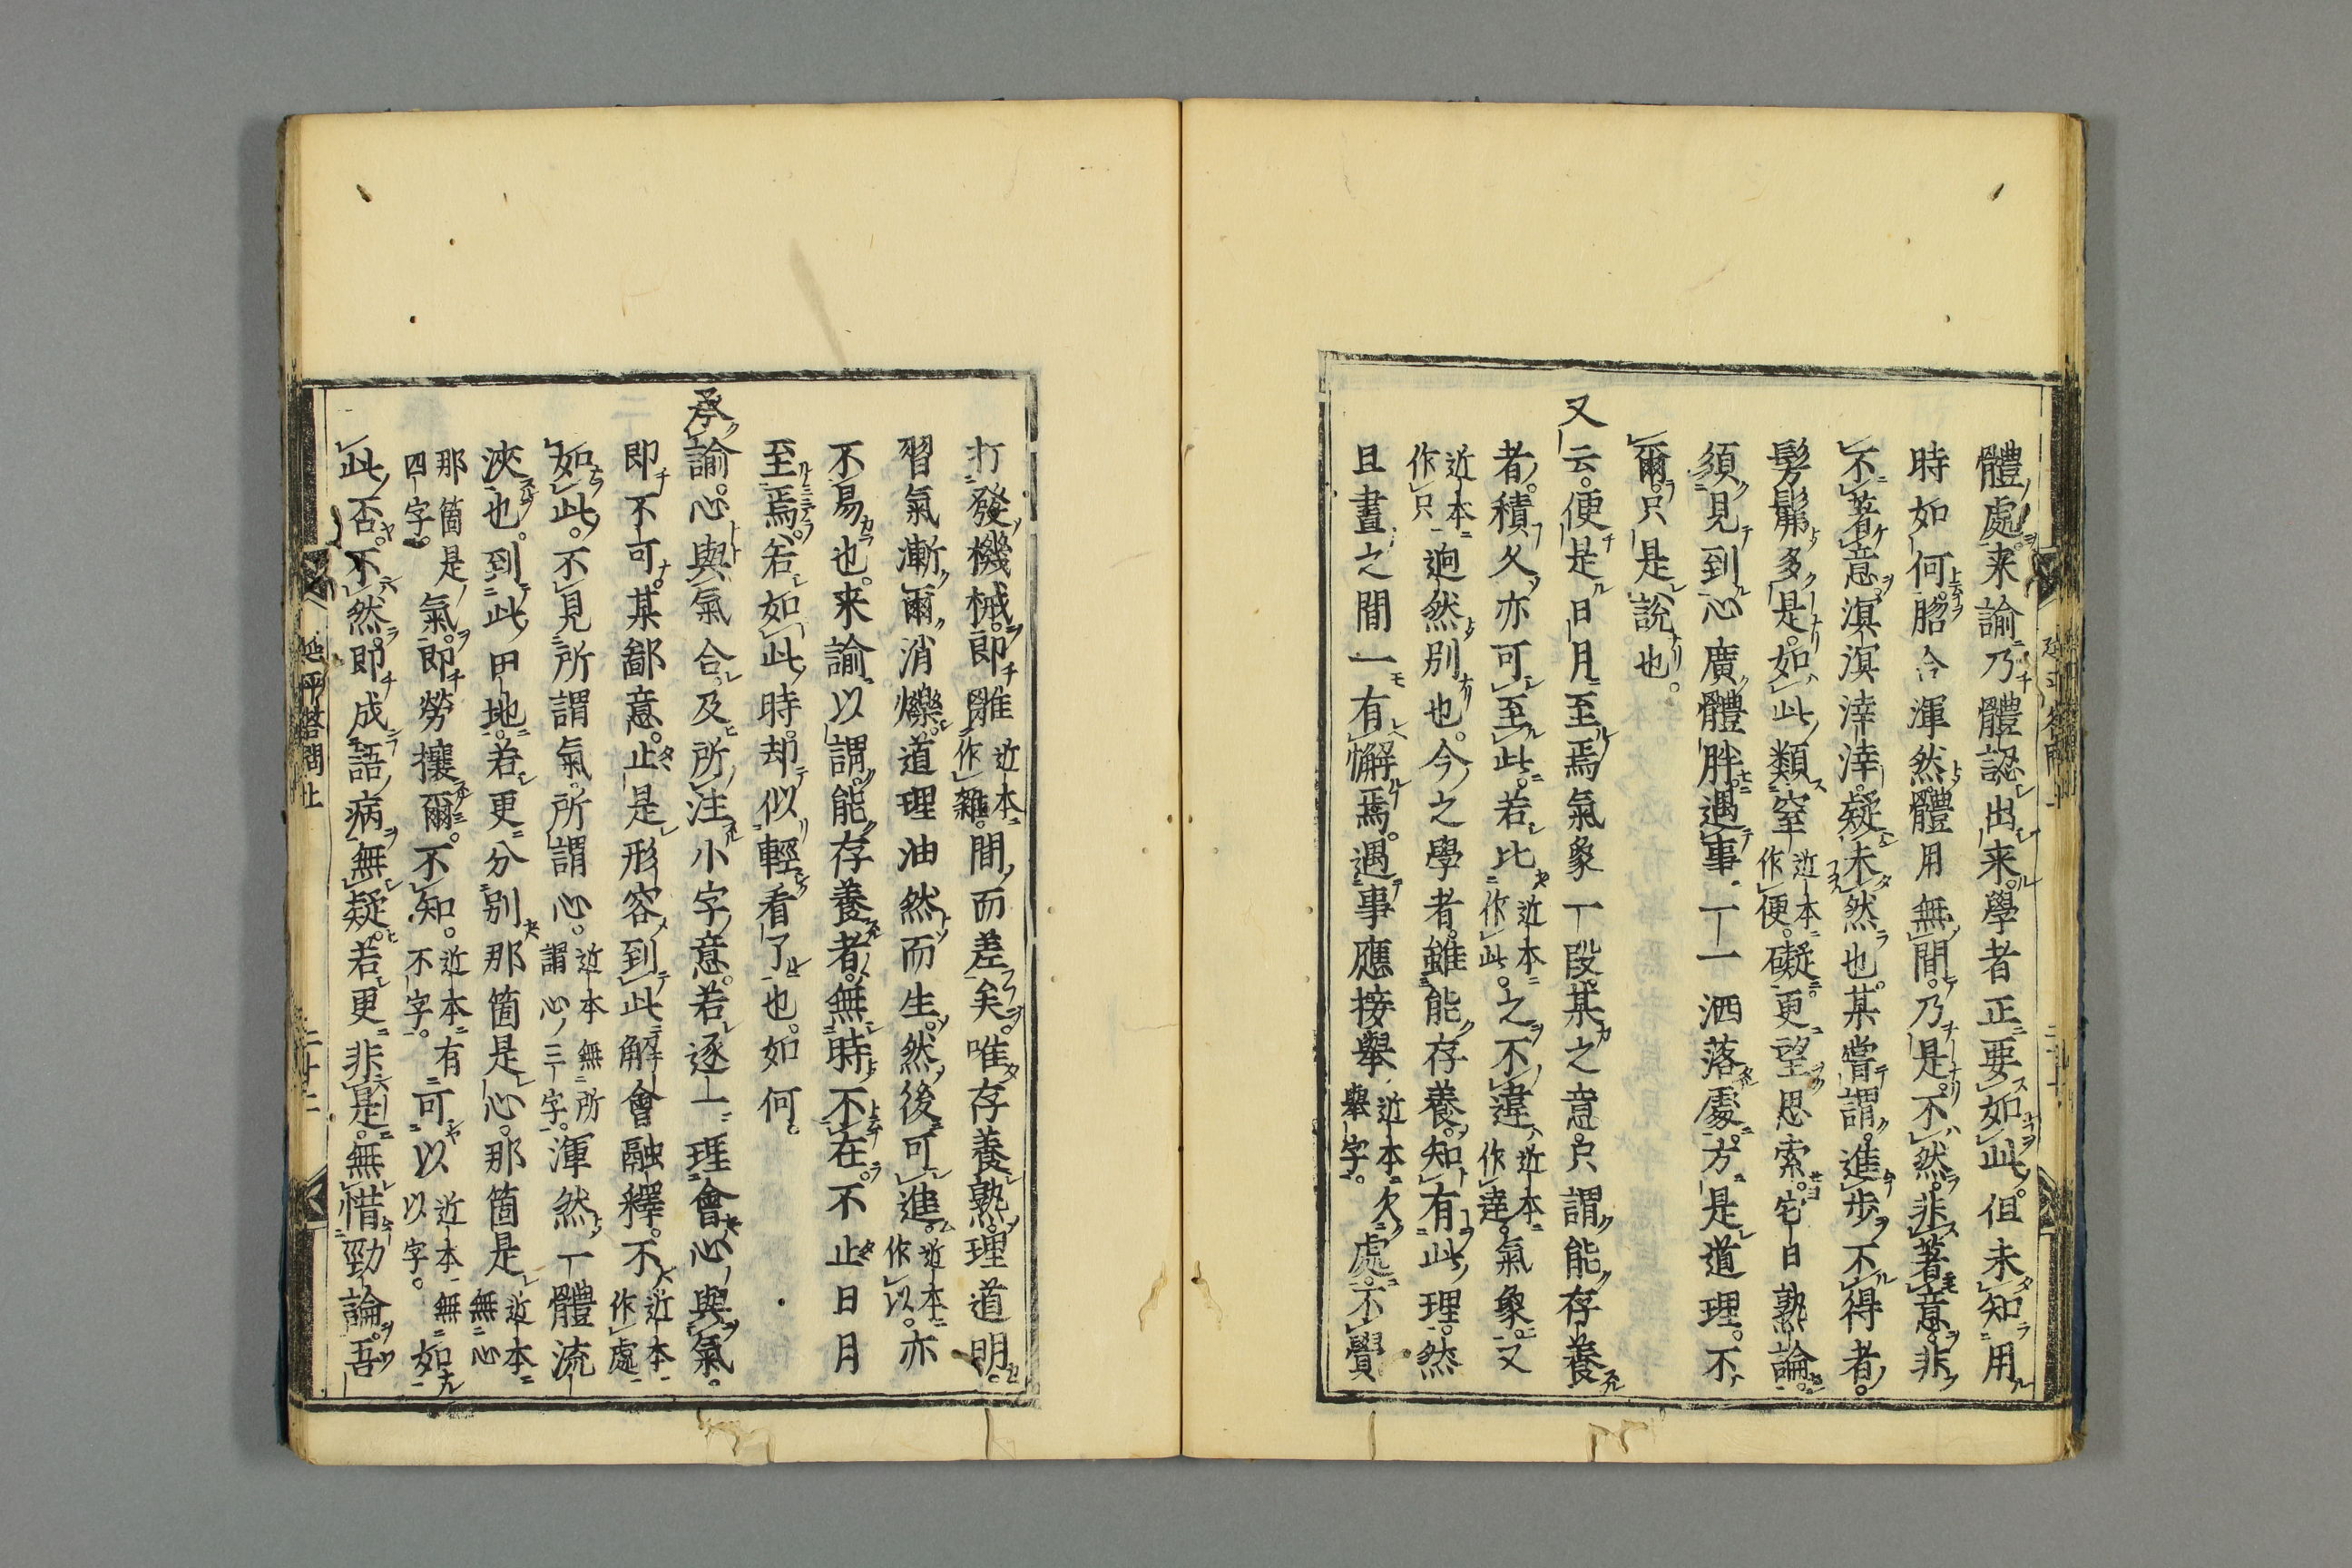 體處。来諭乃體認出来。學者正要如此。但未知用
時如何。脗合渾然。體用無間。乃是。不然。非著意。非
不著意。溟溟涬涬。疑未然也。某嘗謂。進歩不得者。
髣髴多是。如此類窒近本作便。礙。更望思索。它日熟論。
須見到心廣體胖。遇事一一洒落處。方是道理。不
爾。只是說也。
又云。便是日月至焉氣象一段。某之意。只謂能存養
者。積久亦可至此。若比近本作此。之不違近本作違。氣象。又
近本作只迥然別也。今之學者。雖能存養。知有此理。然
且晝之間一有懈焉。遇事應接舉近本欠舉字。處。不覺
打發機械。即離近本作雜。間而差矣。唯存養熟。理道明。
習氣漸爾消爍。道理油然而生。然後可進。近本作以。亦
不易也。来諭以謂。能存養者。無時不在。不止日月
至焉。若如此時。却似輕看了也。如何。
承諭。心與氣合。及所注小字意。若逐一理會心與氣。
即不可。某鄙意。止是形容到此解會融釋。不近本作處。
如此。不見所謂氣。所謂心。近本無所謂心三字。渾然一體流
浹也。到此田地。若更分別那箇是心。那箇是近本無心
那箇是四字。氣。即勞攘爾。不知。近本有不字。可以近本無以字。如
此否。不然。即成語病無疑。若更非是。無惜勁論。吾
延平答問上
二十二